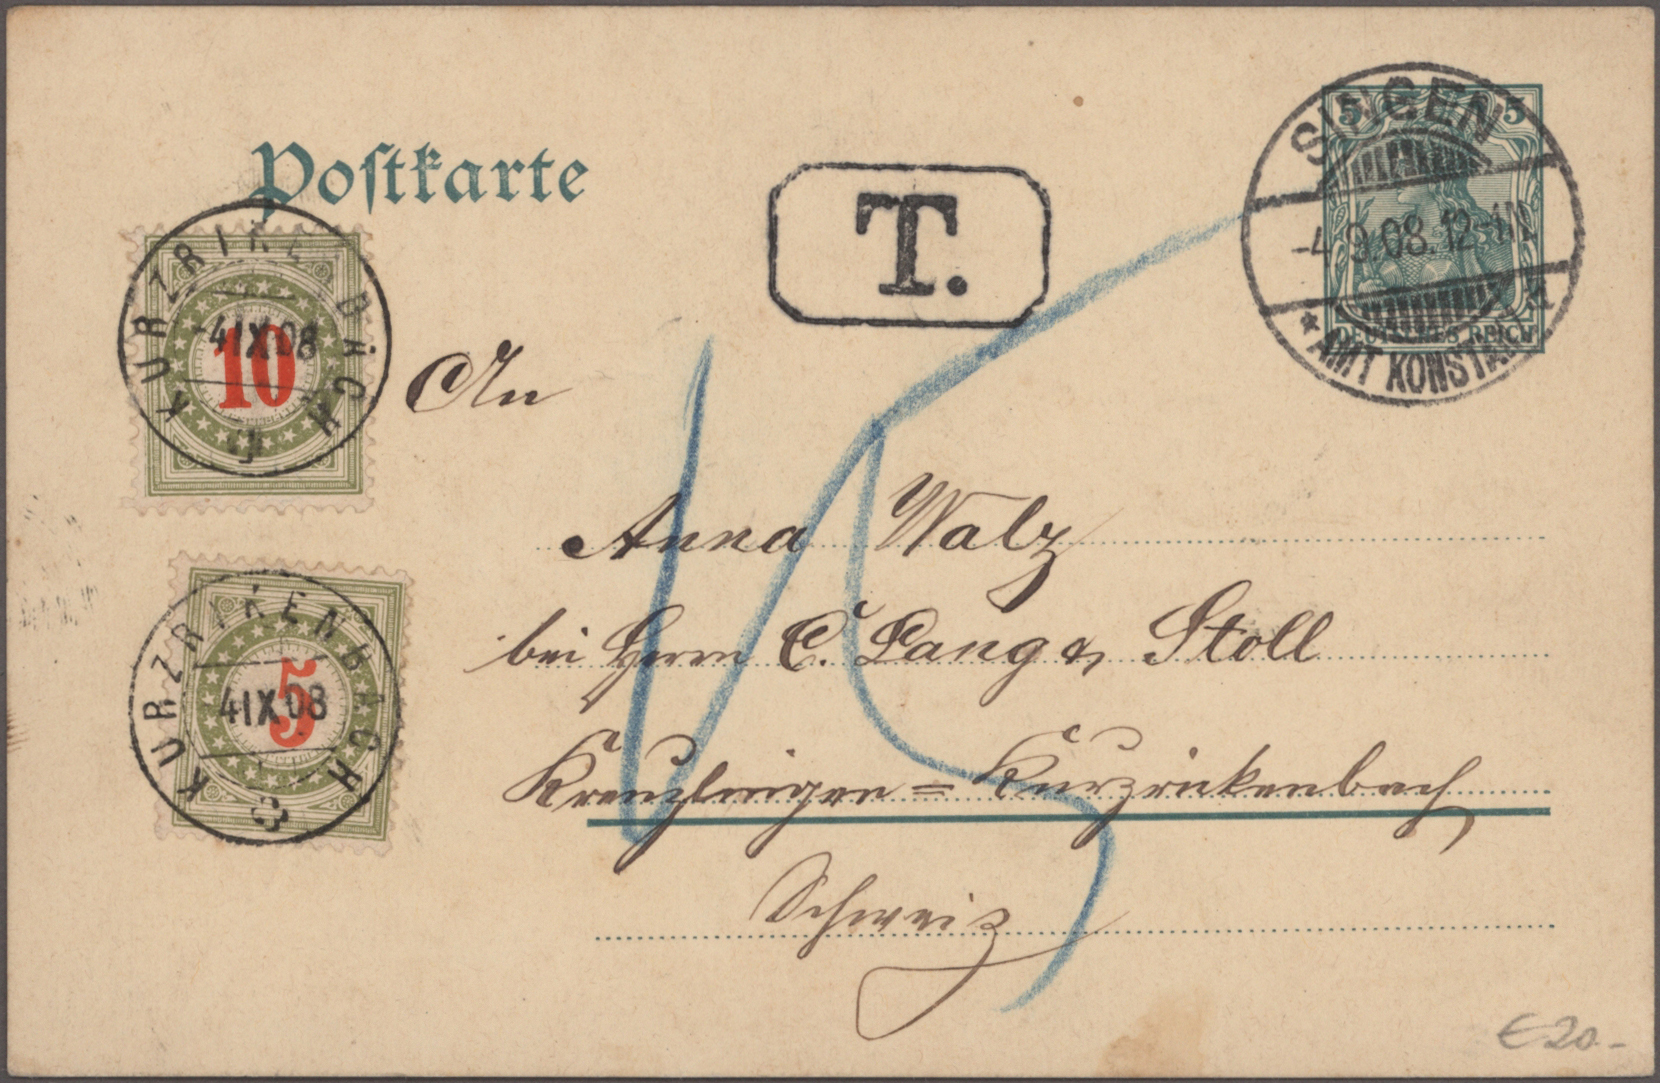 Postkarte
T.
5 5
SINGEN
-4.9.08.12-1N
* AMT KONSTANZ
DEUTSCHES REICH
KURZRIKENBACH
-4 IX 08
10
An
Anna Walz
bei Herrn C. Lang z. Stoll
Kreuzlingen = Kurzrickenbach
Schweiz
KURZRIKENBACH
4 IX 08
5
15
€ 20.-